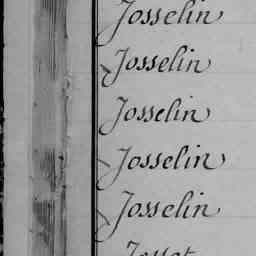 Josselin
Josselin
Josselin
Josselin
Josselin